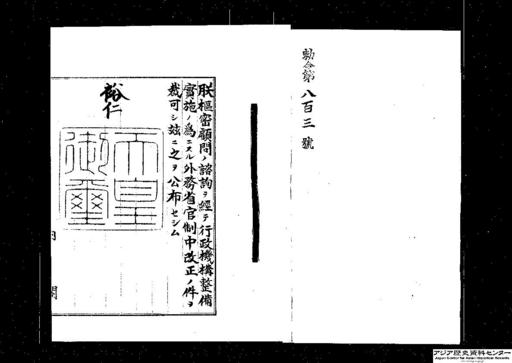 勅令第八百三號
朕樞密顧問ノ諮詢ヲ經テ行政機構整備
實施ノ爲ニスル外務省官制中改正ノ件ヲ
裁可シ玆ニ之ヲ公布セシム
裕仁
天皇
御璽
アジア歴史資料センター
Japan Center for Asian Historical Records